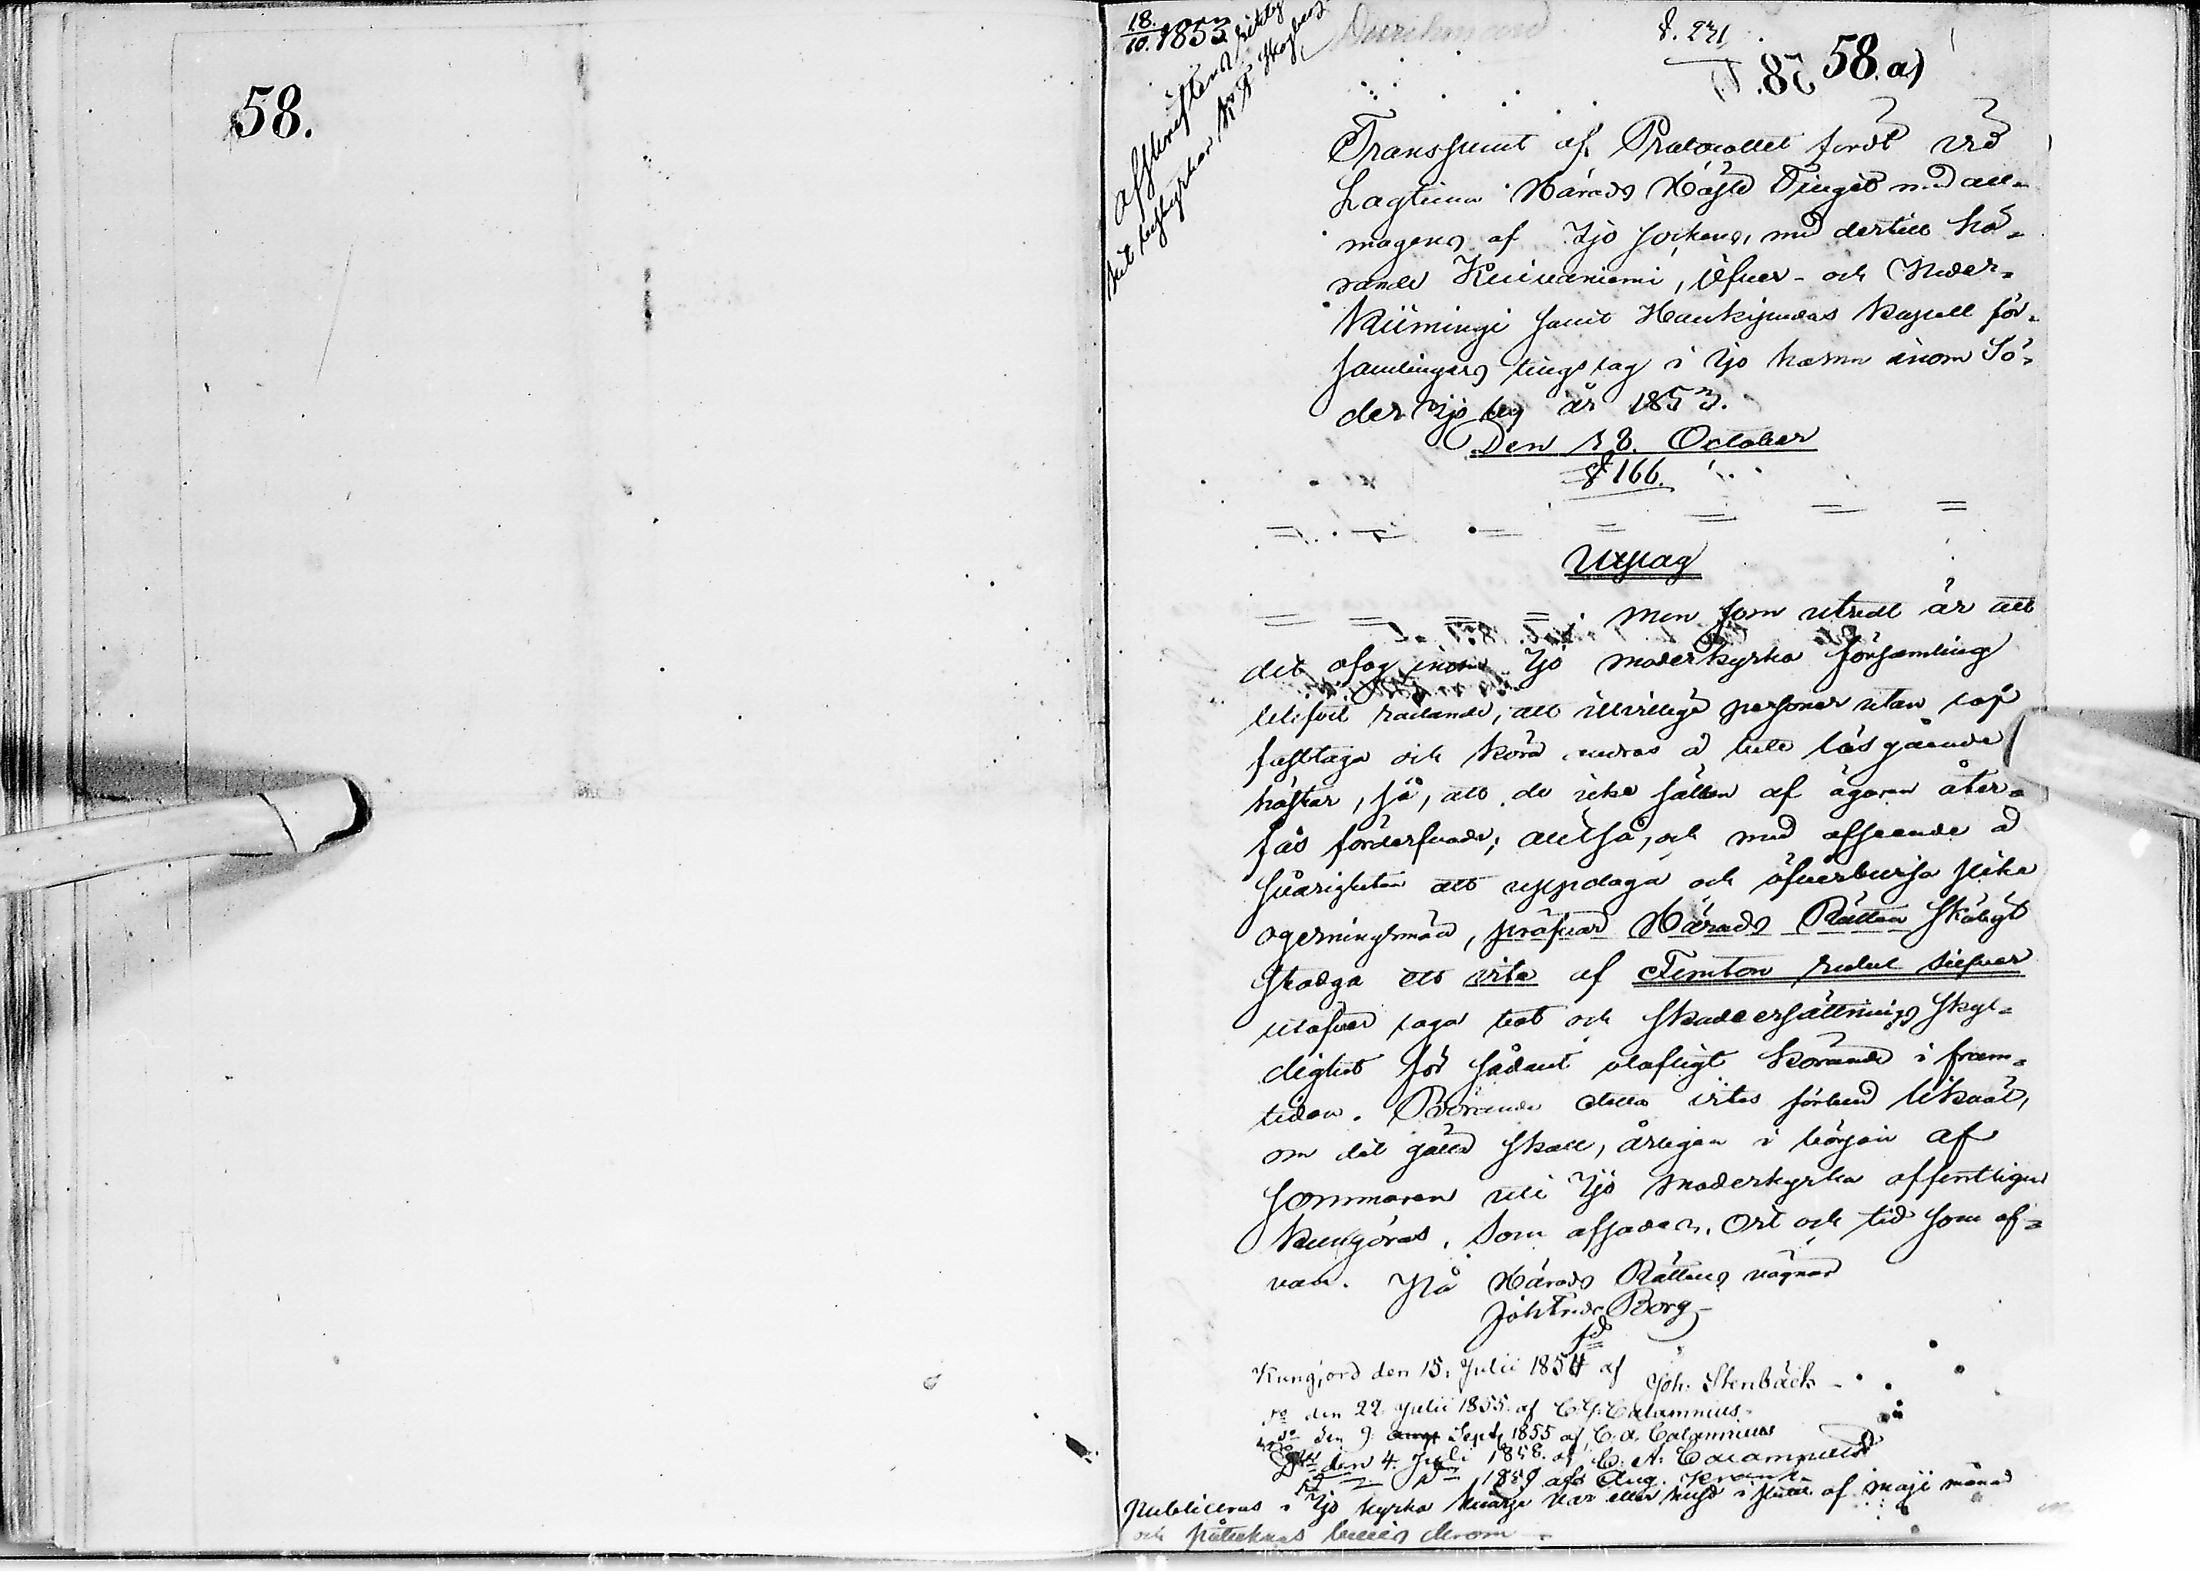 58.
18.
10. 1853.
58. a)
Transsumt af Protocollet fördt vid
Lagtima Härads Höste Tinget med all-
mogen af Ijo socken, med dertill hö-
rande Kuivaniemi, Öfver- och Neder-
Kiimingi samt Haukipudas Kapell för-
samlingars tingslag i Ijo hamn inom Sö-
der Ijo by år 1853.
Den 18. October
§ 166.
Utslag
men som utredt är att
det ofog inom Ijo moderkyrko församling
blifvit rådande, att illvillige personer utan lof
fasttaga och köra andras å bete lösgående
hästar, så, att de icke sällan af ägaren åter-
fås förderfvade; alltså, och med afseende å
svårigheten att uppdaga och öfverbevisa slike
ogerningsmän, pröfvar Härads Rätten skäligt
stadga ett vite af Femton rubel silfver
utöfver laga bot och skadeersättnings skyl-
dighet för sådant olofligt körande i fram-
tiden. Börande detta vites förbud likväl,
om det gälla skall, årligen i början af
sommaren uti Ijo Moderkyrka offentligen
kungöras. Som afsades. Ort och tid som of-
van. På Härads Rättens vägnar
Joh Fredr Borg
Kungjord den 15. Julii 1854 af Joh. Stenbäck
do den 22 Julii 1855. af C. G. Calamnius.
do den 9 Sept 1855 af C. A. Calamnius
den 4. Juli 1858. af C. A. Calamnius
1859 af Aug.
Publiceras i Ijo kyrka hvarje vår eller höst i slutet af Maji månad
och påtecknas bevis derom.